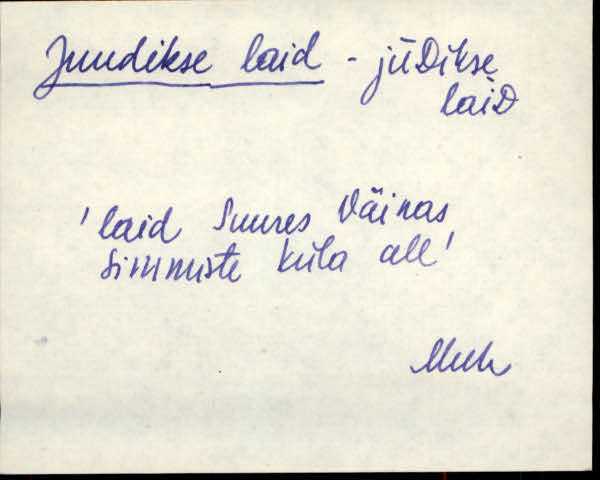 Juudikse laid - jūDikse
laiD
'laid Suures Väinas
Simmiste küla all'
Muh